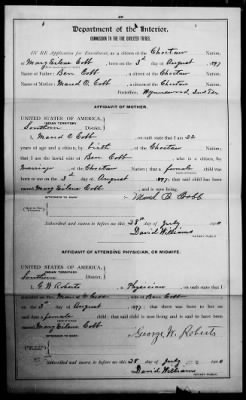 Department of the Interior,
COMMISSION TO THE FIVE CIVILIZED TRIBES.
IN RE Application for Enrollment, as a citizen of the Choctaw Nation,
of Mary Erlene Cobb, born on the 3d day of August, 1897
Name of Father: Ben Cobb, a citizen of the Choctaw Nation.
Name of Mother: Maud O Cobb, a citizen of the Choctaw Nation.
Postoffice, Wynnewood, Ind Ter
AFFIDAVIT OF MOTHER.
UNITED STATES OF AMERICA,
INDIAN TERRITORY
Southern District.
I, Maud O Cobb, on oath state that I am 22
years of age and a citizen, by birth, of the Choctaw Nation;
that I am the lawful wife of Ben Cobb, who is a citizen, by
marriage, of the Choctaw Nation; that a female child
was born to me on the 3d day of August, 1897; that said child has been
named Mary Erlene Cobb, and is now living.
Maud O Cobb
WITNESSES TO MARK:
Subscribed and sworn to before me this 28th day of July
David Williams
NOTARY PUBLIC.
AFFIDAVIT OF ATTENDING PHYSICIAN, OR MIDWIFE.
UNITED STATES OF AMERICA,
INDIAN TERRITORY
Southern District.
I, G W Roberts, a Physician, on oath state that I
attended on Mrs. Maud O Cobb, wife of Ben Cobb
on the 3d day of August, 1897; that there was born to her on
said date a female child; that said child is now living and is said to have been
named Mary Erlene Cobb
George W. Roberts
WITNESSES TO MARK:
Subscribed and sworn to before me this 28 day of July
David Williams
NOTARY PUBLIC.